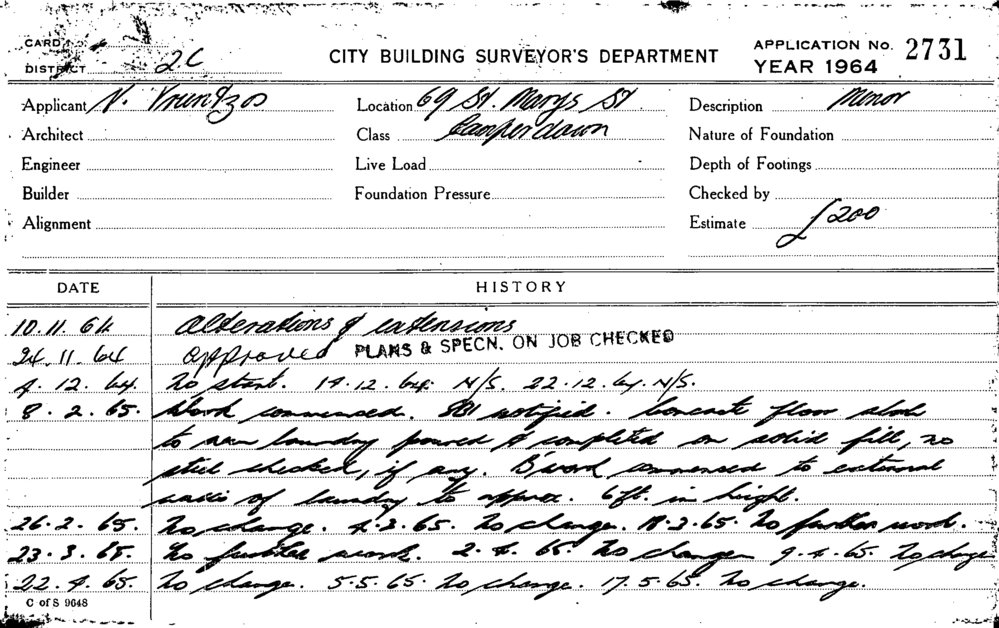 CARD No.
DISTRICT 2C
CITY BUILDING SURVEYOR'S DEPARTMENT
APPLICATION No. 2731
YEAR 1964
Applicant N. Vruntzos Location 69 St. Marys St Description Minor
Architect Class Camperdown Nature of Foundation
Engineer Live Load Depth of Footings
Builder Foundation Pressure Checked by
Alignment Estimate £200
DATE HISTORY
10.11.64 Alterations & extensions
24.11.64 approved PLANS & SPECN. ON JOB CHECKED
4.12.64. No start. 14.12.64. N/S. 22.12.64. N/S.
8.2.65. Work commenced. SBI notified. Concrete floor slab
to new laundry poured & completed on solid fill, no
steel checked, if any. B'work commenced to external
walls of laundry to approx. 6ft. in height.
26.2.65. No change. 4.3.65. No change. 18.3.65. No further work.
23.3.65. No further work. 2.4.65. No change 9.4.65. No change
22.4.65. No change. 5.5.65. No change. 17.5.65. No change.
C of S 9648